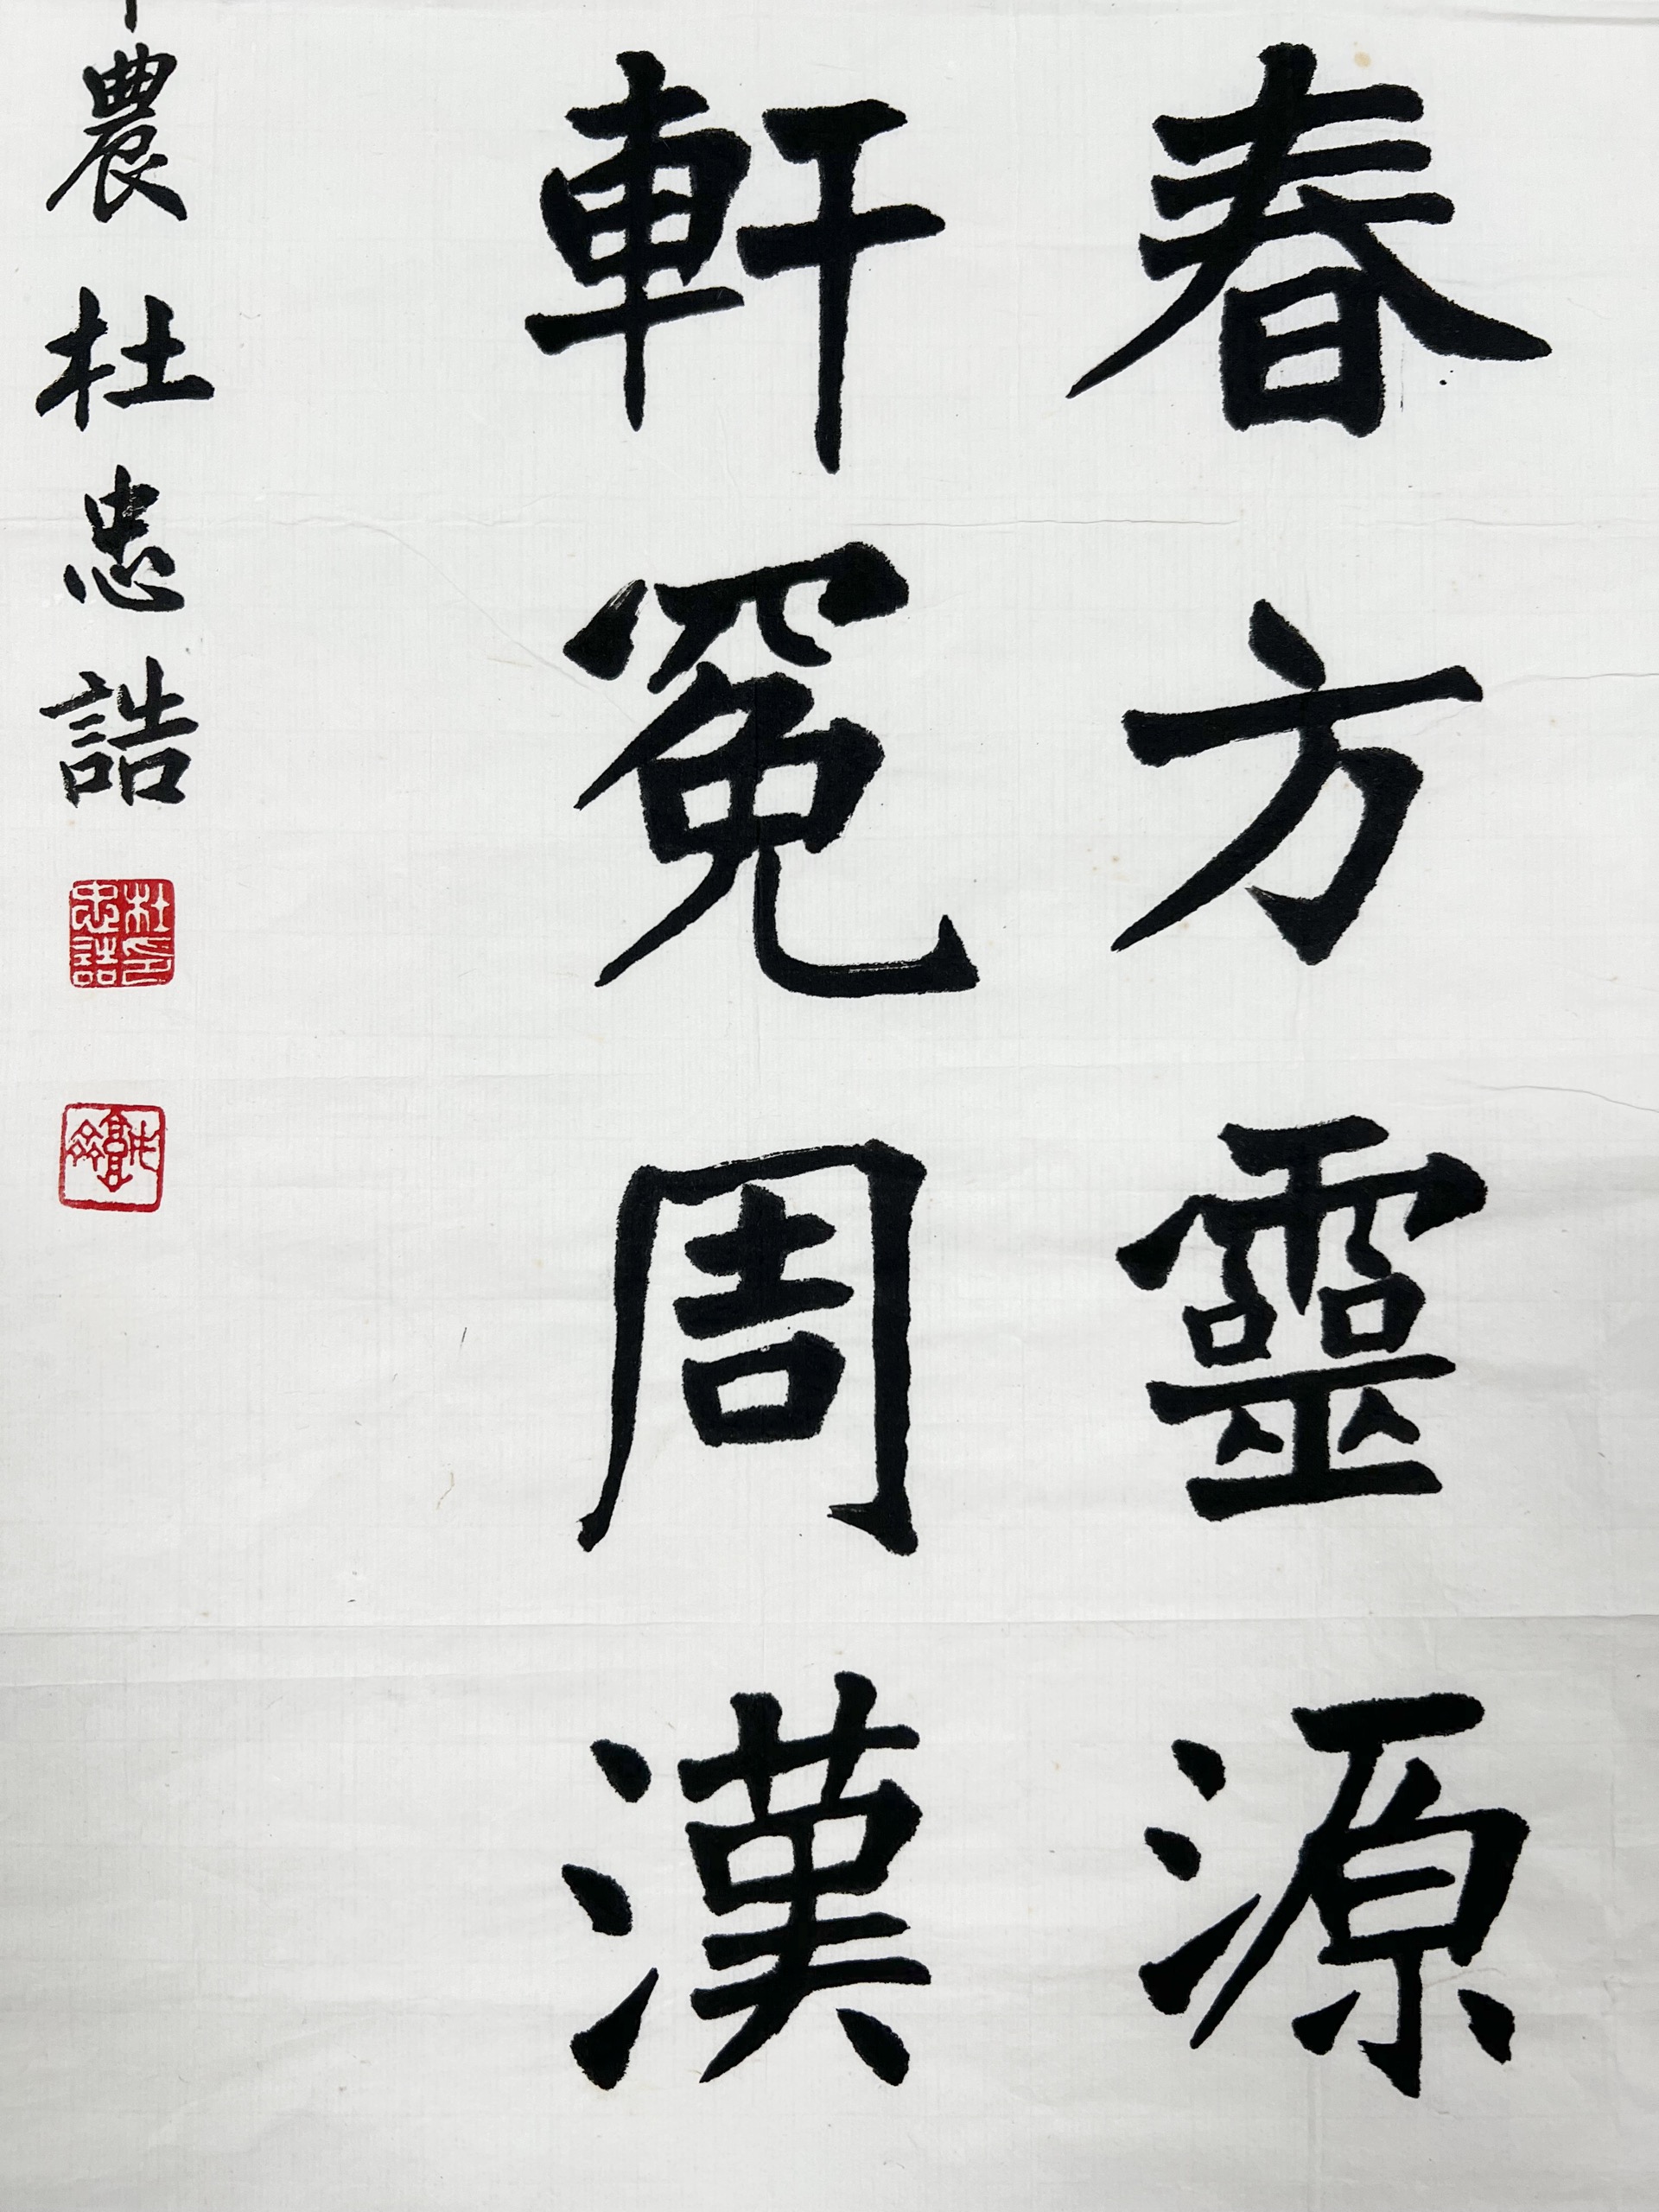 春方靈源
軒冕周漢
農杜忠誥
杜忠誥印